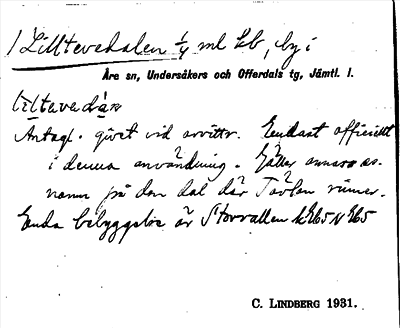 1 Lilltevedalen 1/4 ml kb, by i
Åre sn, Undersåkers och Offerdals tg, Jämtl. l.
Antagl. givet vid avvittr. Endast officiellt
i denna användning. Gäller annars as.
namn på den dal där Tävlan rinner.
Enda bebyggelse är Storvallen
C. LINDBERG 1931.